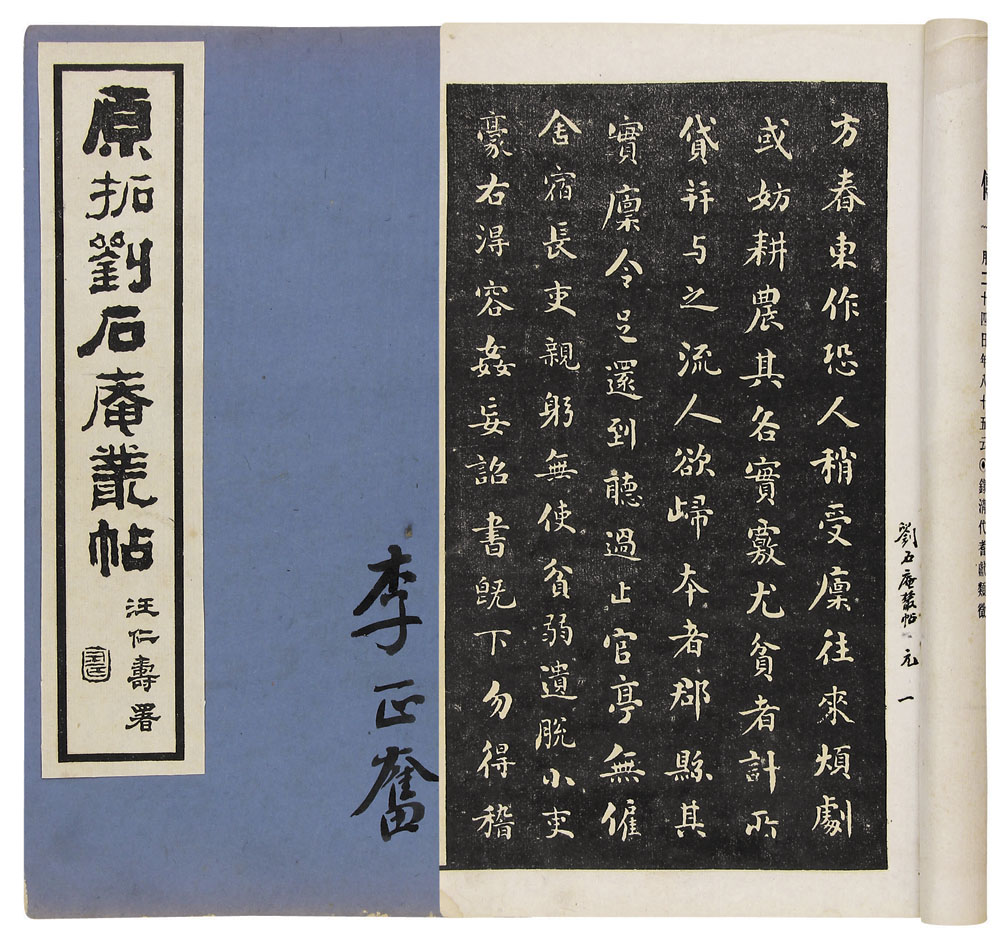 原拓劉石庵叢帖
汪仁壽署
李正奮
方春東作恐人稍受廩往來煩劇
或妨耕農其各實覈尤貧者計所
貸并与之流人欲歸本者郡縣其
實廩令足還到聽過止官亭無僱
舍宿長吏親躬無使貧弱遺脫小吏
豪右得容姦妄詔書既下勿得稽
劉石庵叢帖 元 一
月二十四日年八十五云●錄清代耆獻類徵